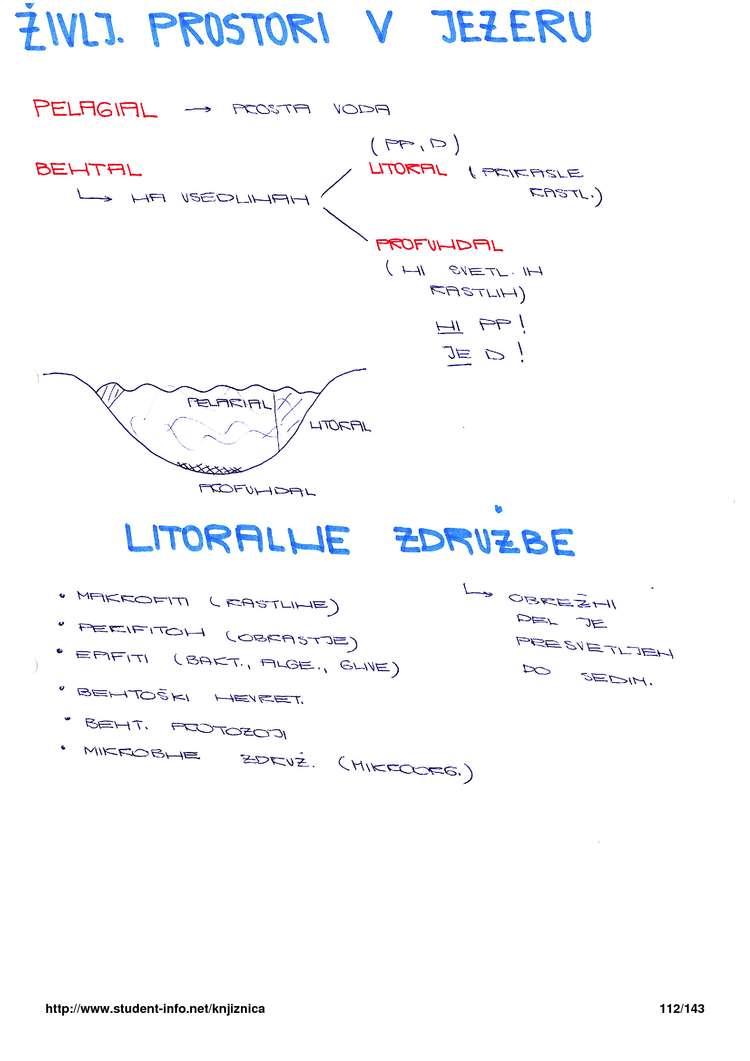 ŽIVLJ. PROSTORI V JEZERU
PELAGIAL → PROSTA VODA
(PP, D)
BENTAL
LITORAL (PRIRASLE
RASTL.)
↳ NA USEDLINAH
PROFUNDAL
(NI SVETL. IN
RASTLIN)
NI PP!
JE D!
PELAGIAL
LITORAL
PROFUNDAL
LITORALNE ZDRUŽBE
• MAKROFITI (RASTLINE)
• PERIFITON (OBRASTJE)
• EPIFITI (BAKT., ALGE., GLIVE)
• BENTOŠKI NEVRET.
• BENT. PROTOZOJI
• MIKROBNE ZDRUŽ. (MIKROORG.)
↳ OBREŽNI
DEL JE
PRESVETLJEN
DO SEDIM.
http://www.student-info.net/knjiznica
112/143